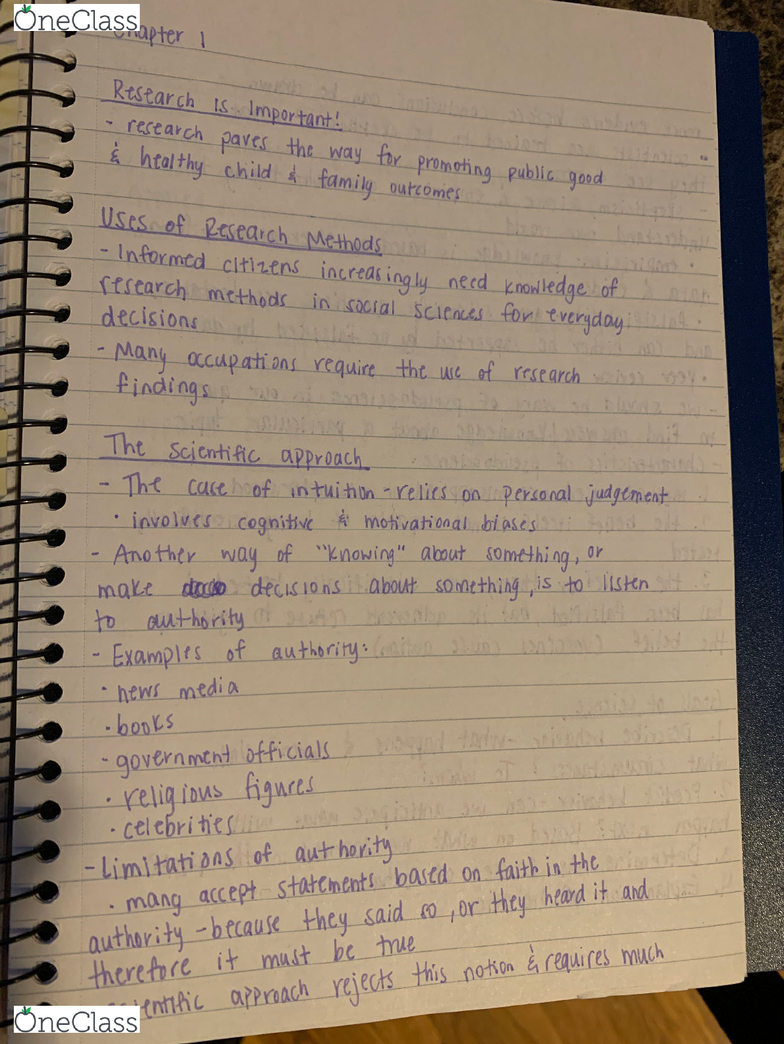 OneClass
Chapter 1
Research is Important!
- research paves the way for promoting public good
& healthy child & family outcomes
Uses of Research Methods
- Informed citizens increasingly need knowledge of
research methods in social sciences for everyday
decisions
- Many occupations require the use of research
findings
The scientific approach
- The case of intuition - relies on personal judgement
· involves cognitive & motivational biases
- Another way of "knowing" about something, or
make decisions about something, is to listen
to authority
- Examples of authority:
· news media
· books
· government officials
· religious figures
· celebrities
- Limitations of authority
· mang accept statements based on faith in the
authority - because they said so, or they heard it and
therefore it must be true
scientific approach rejects this notion & requires much
OneClass